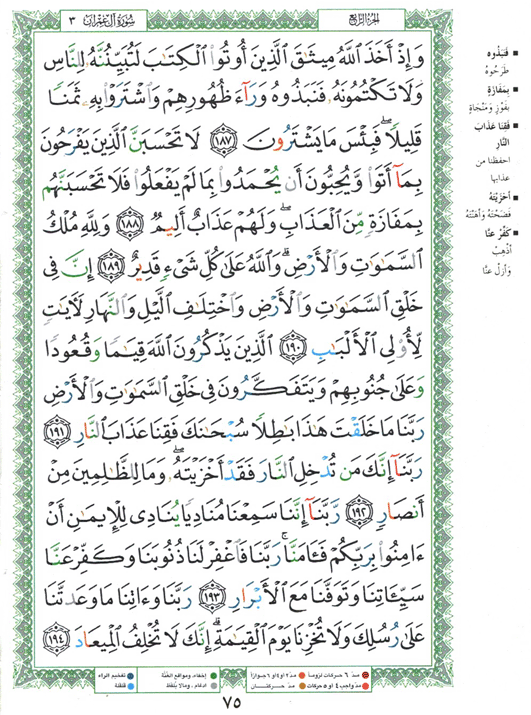 سُورَةُ آلِ عِمْرَانَ ٣
الجُزْءُ الرَّابِعُ
وَإِذْ أَخَذَ ٱللَّهُ مِيثَٰقَ ٱلَّذِينَ أُوتُوا۟ ٱلْكِتَٰبَ لَتُبَيِّنُنَّهُۥ لِلنَّاسِ
وَلَا تَكْتُمُونَهُۥ فَنَبَذُوهُ وَرَآءَ ظُهُورِهِمْ وَٱشْتَرَوْا۟ بِهِۦ ثَمَنًا
قَلِيلًا ۖ فَبِئْسَ مَا يَشْتَرُونَ ﴿١٨٧﴾ لَا تَحْسَبَنَّ ٱلَّذِينَ يَفْرَحُونَ
بِمَآ أَتَوا۟ وَّيُحِبُّونَ أَن يُحْمَدُوا۟ بِمَا لَمْ يَفْعَلُوا۟ فَلَا تَحْسَبَنَّهُم
بِمَفَازَةٍ مِّنَ ٱلْعَذَابِ ۖ وَلَهُمْ عَذَابٌ أَلِيمٌ ﴿١٨٨﴾ وَلِلَّهِ مُلْكُ
ٱلسَّمَٰوَٰتِ وَٱلْأَرْضِ ۗ وَٱللَّهُ عَلَىٰ كُلِّ شَىْءٍ قَدِيرٌ ﴿١٨٩﴾ إِنَّ فِى
خَلْقِ ٱلسَّمَٰوَٰتِ وَٱلْأَرْضِ وَٱخْتِلَٰفِ ٱلَّيْلِ وَٱلنَّهَارِ لَءَايَٰتٍ
لِّأُو۟لِى ٱلْأَلْبَٰبِ ﴿١٩٠﴾ ٱلَّذِينَ يَذْكُرُونَ ٱللَّهَ قِيَٰمًا وَقُعُودًا
وَعَلَىٰ جُنُوبِهِمْ وَيَتَفَكَّرُونَ فِى خَلْقِ ٱلسَّمَٰوَٰتِ وَٱلْأَرْضِ
رَبَّنَا مَا خَلَقْتَ هَٰذَا بَٰطِلًا سُبْحَٰنَكَ فَقِنَا عَذَابَ ٱلنَّارِ ﴿١٩١﴾
رَبَّنَآ إِنَّكَ مَن تُدْخِلِ ٱلنَّارَ فَقَدْ أَخْزَيْتَهُۥ ۖ وَمَا لِلظَّٰلِمِينَ مِنْ
أَنصَارٍ ﴿١٩٢﴾ رَّبَّنَآ إِنَّنَا سَمِعْنَا مُنَادِيًا يُنَادِى لِلْإِيمَٰنِ أَنْ
ءَامِنُوا۟ بِرَبِّكُمْ فَـَٔامَنَّا ۚ رَبَّنَا فَٱغْفِرْ لَنَا ذُنُوبَنَا وَكَفِّرْ عَنَّا
سَيِّـَٔاتِنَا وَتَوَفَّنَا مَعَ ٱلْأَبْرَارِ ﴿١٩٣﴾ رَبَّنَا وَءَاتِنَا مَا وَعَدتَّنَا
عَلَىٰ رُسُلِكَ وَلَا تُخْزِنَا يَوْمَ ٱلْقِيَٰمَةِ ۗ إِنَّكَ لَا تُخْلِفُ ٱلْمِيعَادَ ﴿١٩٤﴾
■ فَنَبَذُوهُ
طَرَحُوهُ
■ بِمَفَازَةٍ
بِفَوْزٍ وَمَنْجَاةٍ
■ فَقِنَا عَذَابَ
النَّارِ
احفظنا من
عذابها
■ أَخْزَيْتَهُ
فَضَحْتَهُ وَأَهَنْتَهُ
■ كَفِّرْ عَنَّا
أَذْهِبْ
وَأَزِلْ عَنَّا
مدّ ٦ حركات لزوماً مدّ ٢ أو ٤ أو ٦ جوازاً
مدّ واجب ٤ أو ٥ حركات مدّ حركتـان
إخفاء، ومواقع الغنّة
ادغام، وما لا يلفظ
تفخيم الراء
قلقلة
٧٥